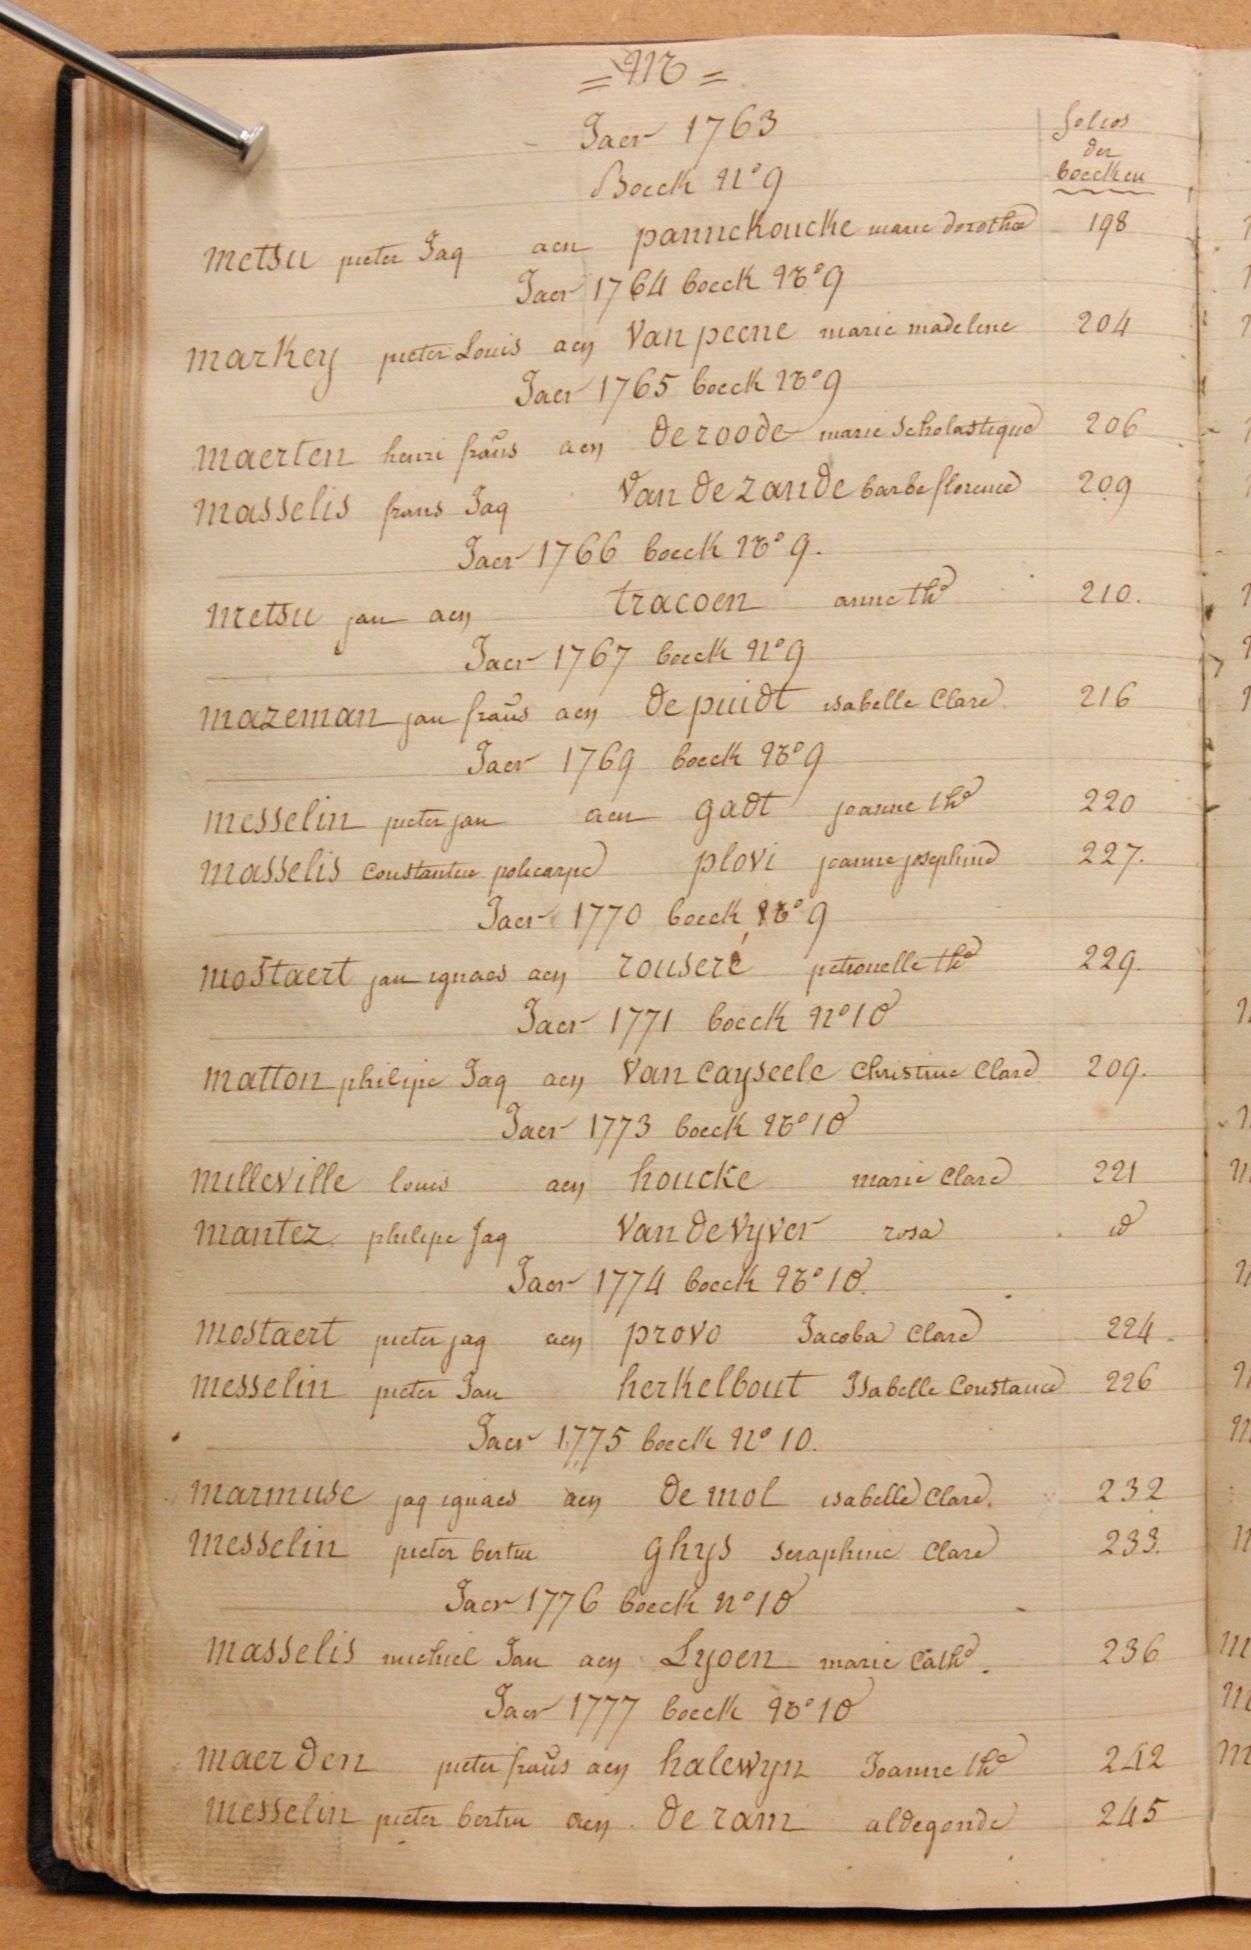 = M =
Jaer 1763
folios
der
boecken
Boeck N° 9
metsu pieter Jaq aen pannekoucke marie dorothée 198
Jaer 1764 boeck N° 9
markey pieter Louis aen Van peene marie madeline 204
Jaer 1765 boeck N° 9
maerten henri fraus aen de roode marie scholastique 206
masselis frans Jaq Van de zande barbe florence 209
Jaer 1766 boeck N° 9.
metsu jan aen tracoen anne thé 210.
Jaer 1767 boeck N° 9
mazeman jan fraus aen de puidt isabelle Clare 216
Jaer 1769 boeck N° 9
messelin pieter jan aen gadt joanne thé 220
masselis Constantin policarpe plovi joanne josephine 227.
Jaer 1770 boeck N° 9
mostaert jan ignaes aen rouseré petronelle thé 229.
Jaer 1771 boeck N° 10
matton philipe Jaq aen Van Cayseele Christine Clare 209.
Jaer 1773 boeck N° 10
milleville louis aen houcke marie Clare 221
mantez philipe Jaq Van de Vyver rosa id
Jaer 1774 boeck N° 10.
mostaert pieter jaq aen provo Jacoba Clare 224
messelin pieter Jan herkelbout Isabelle Constance 226
Jaer 1775 boeck N° 10.
marmuse jaq ignaes aen de mol isabelle Clare. 232
messelin pieter bertin ghys seraphine Clare 233.
Jaer 1776 boeck N° 10
masselis michiel Jan aen Lyoen marie Cathe. 236
Jaer 1777 boeck N° 10
maerden pieter fraus aen halewyn Joanne thé 242
messelin pieter bertin aen de ram aldegonde 245